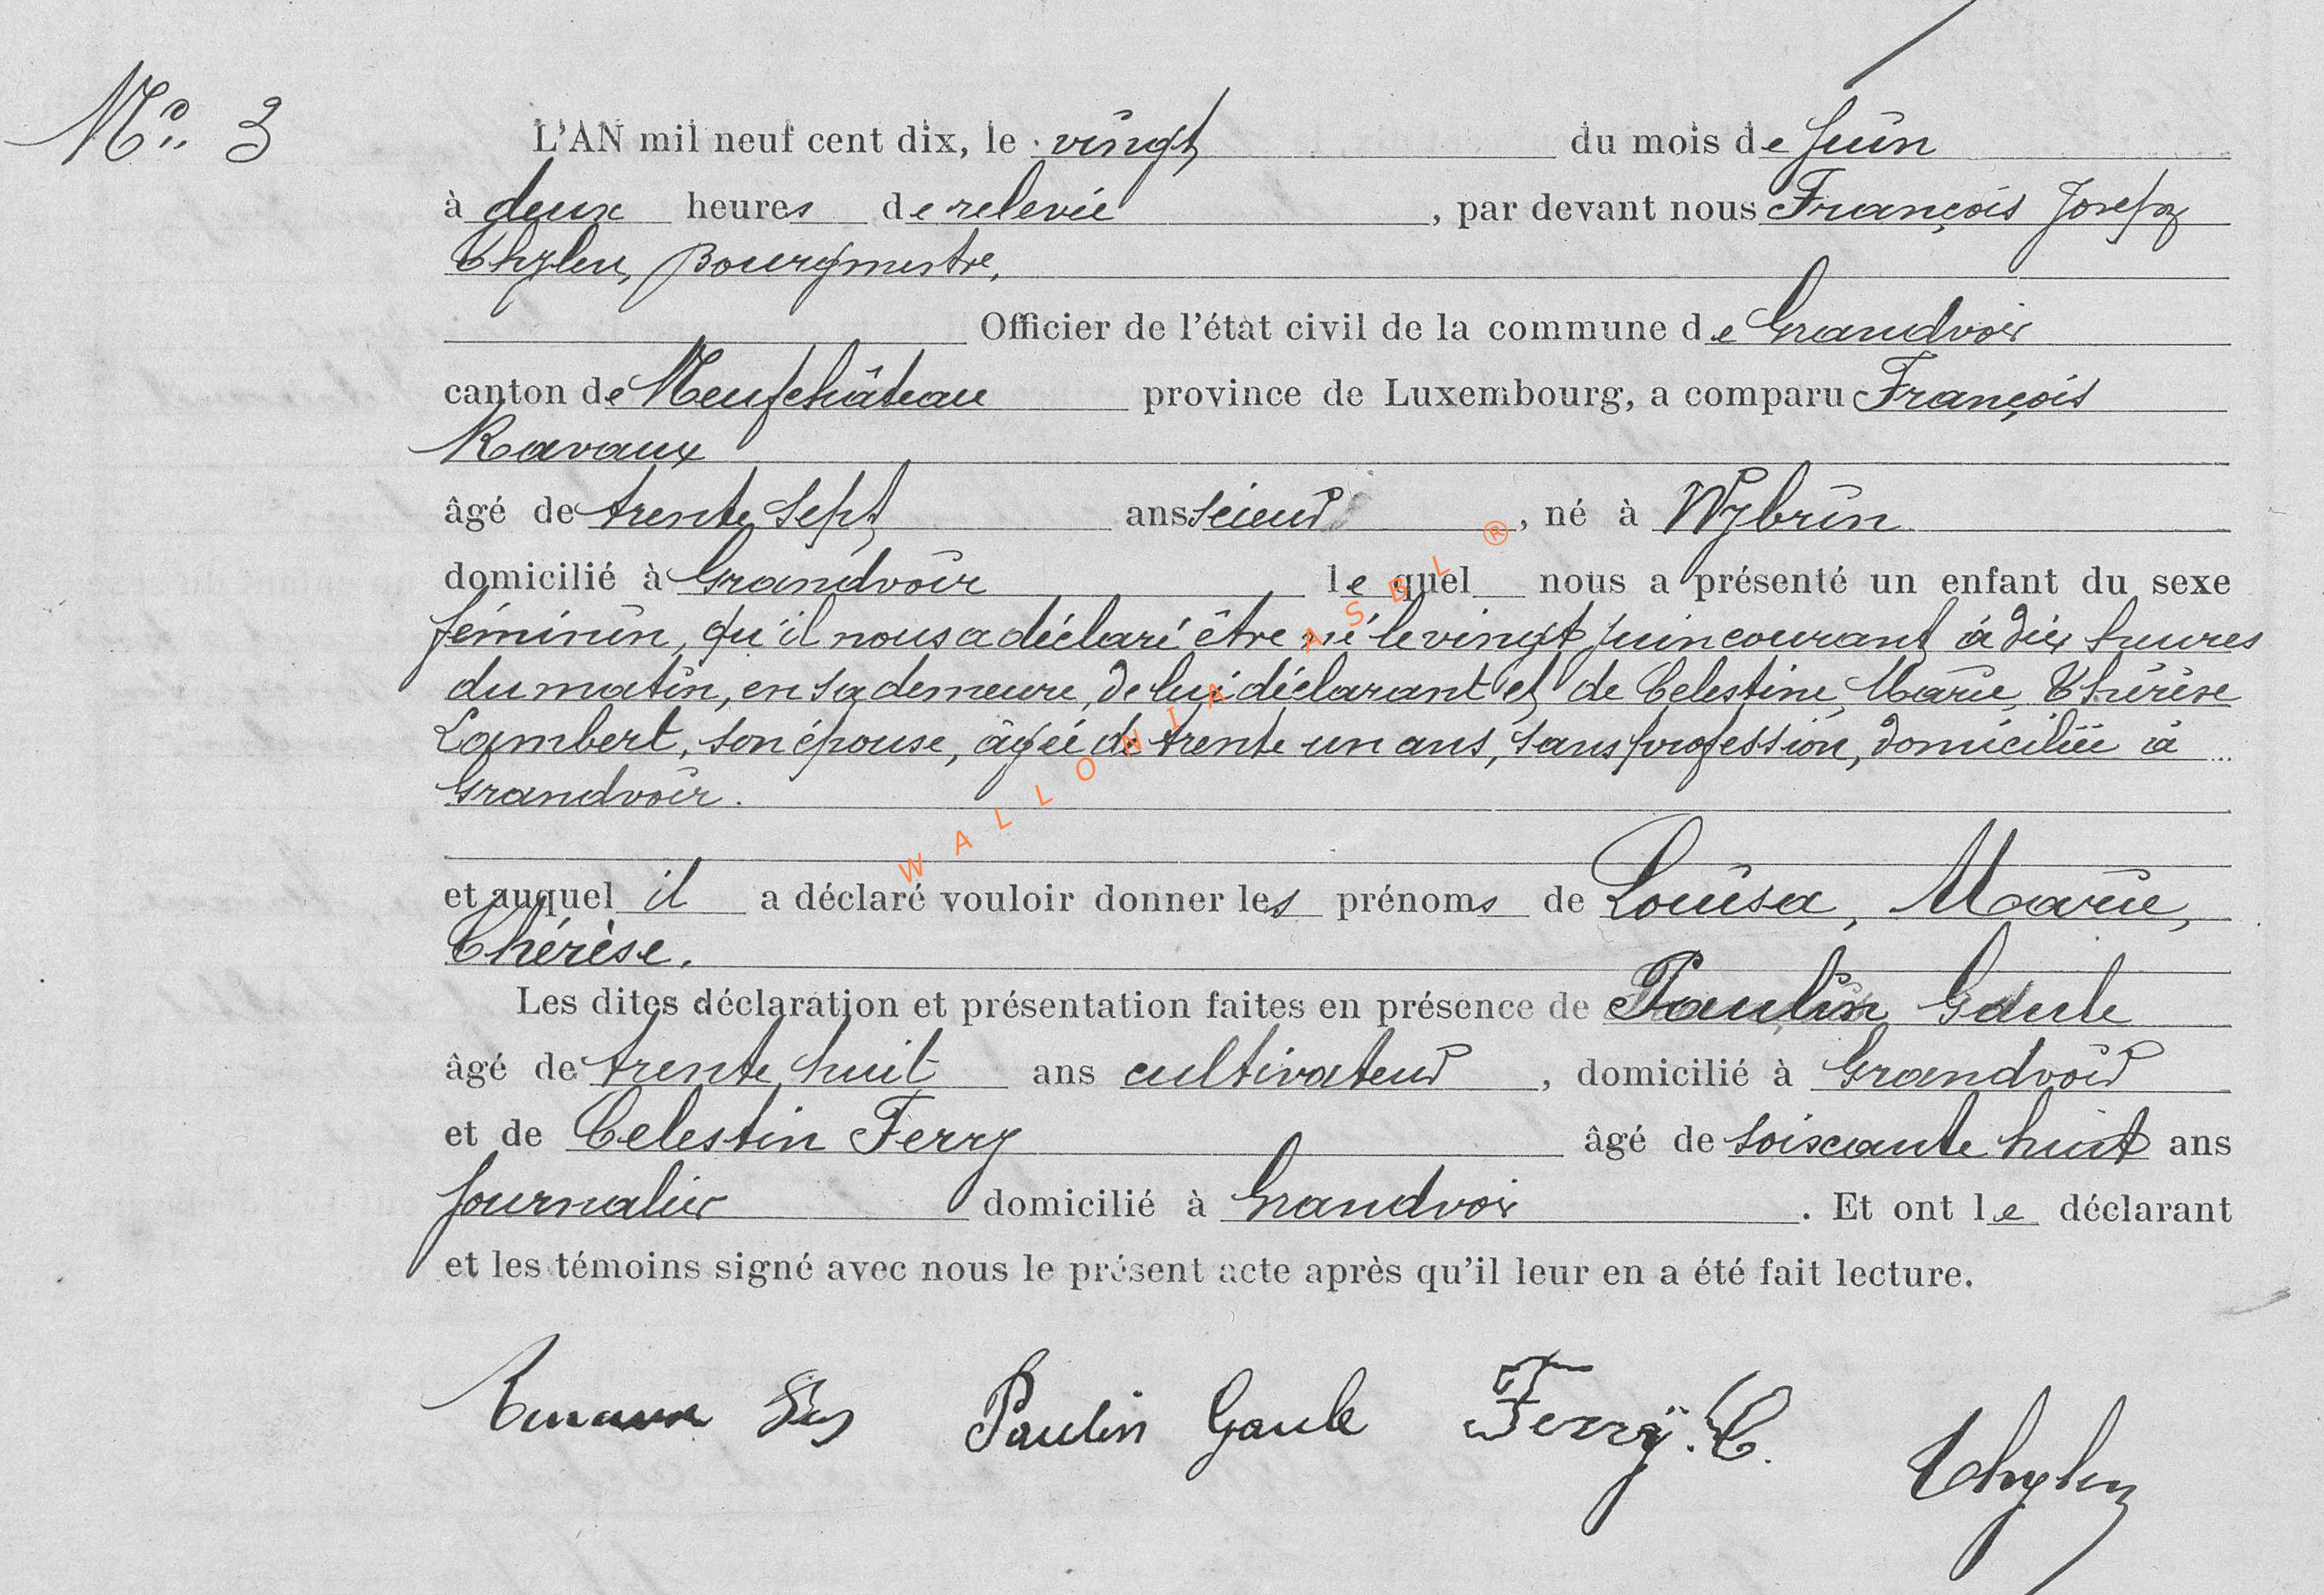 Nº 3
L'AN mil neuf cent dix, le vingt du mois de Juin
à deux heures de relevée, par devant nous François Joseph
Thylen, Bourgmestre,
Officier de l'état civil de la commune de Grandvoir
canton de Neufchâteau province de Luxembourg, a comparu François
Ravaux
âgé de trente sept ans scieur, né à Wybrin
domicilié à Grandvoir lequel nous a présenté un enfant du sexe
féminin, qu'il nous a déclaré être né le vingt juin courant à dix heures
du matin, en sa demeure, de lui déclarant et de Celestine, Marie, Thérèse
Lambert, son épouse, âgée de trente un ans, sans profession, domiciliée à
Grandvoir.
et auquel il a déclaré vouloir donner les prénoms de Louisa, Marie,
Thérèse.
Les dites déclaration et présentation faites en présence de Paulin Gaule
âgé de trente huit ans cultivateur, domicilié à Grandvoir
et de Celestin Ferry âgé de soixante huit ans
journalier domicilié à Grandvoir. Et ont le déclarant
et les témoins signé avec nous le présent acte après qu'il leur en a été fait lecture.
Paulin Gaule Ferry. C. Thylen
WALLONIA ASBL ®